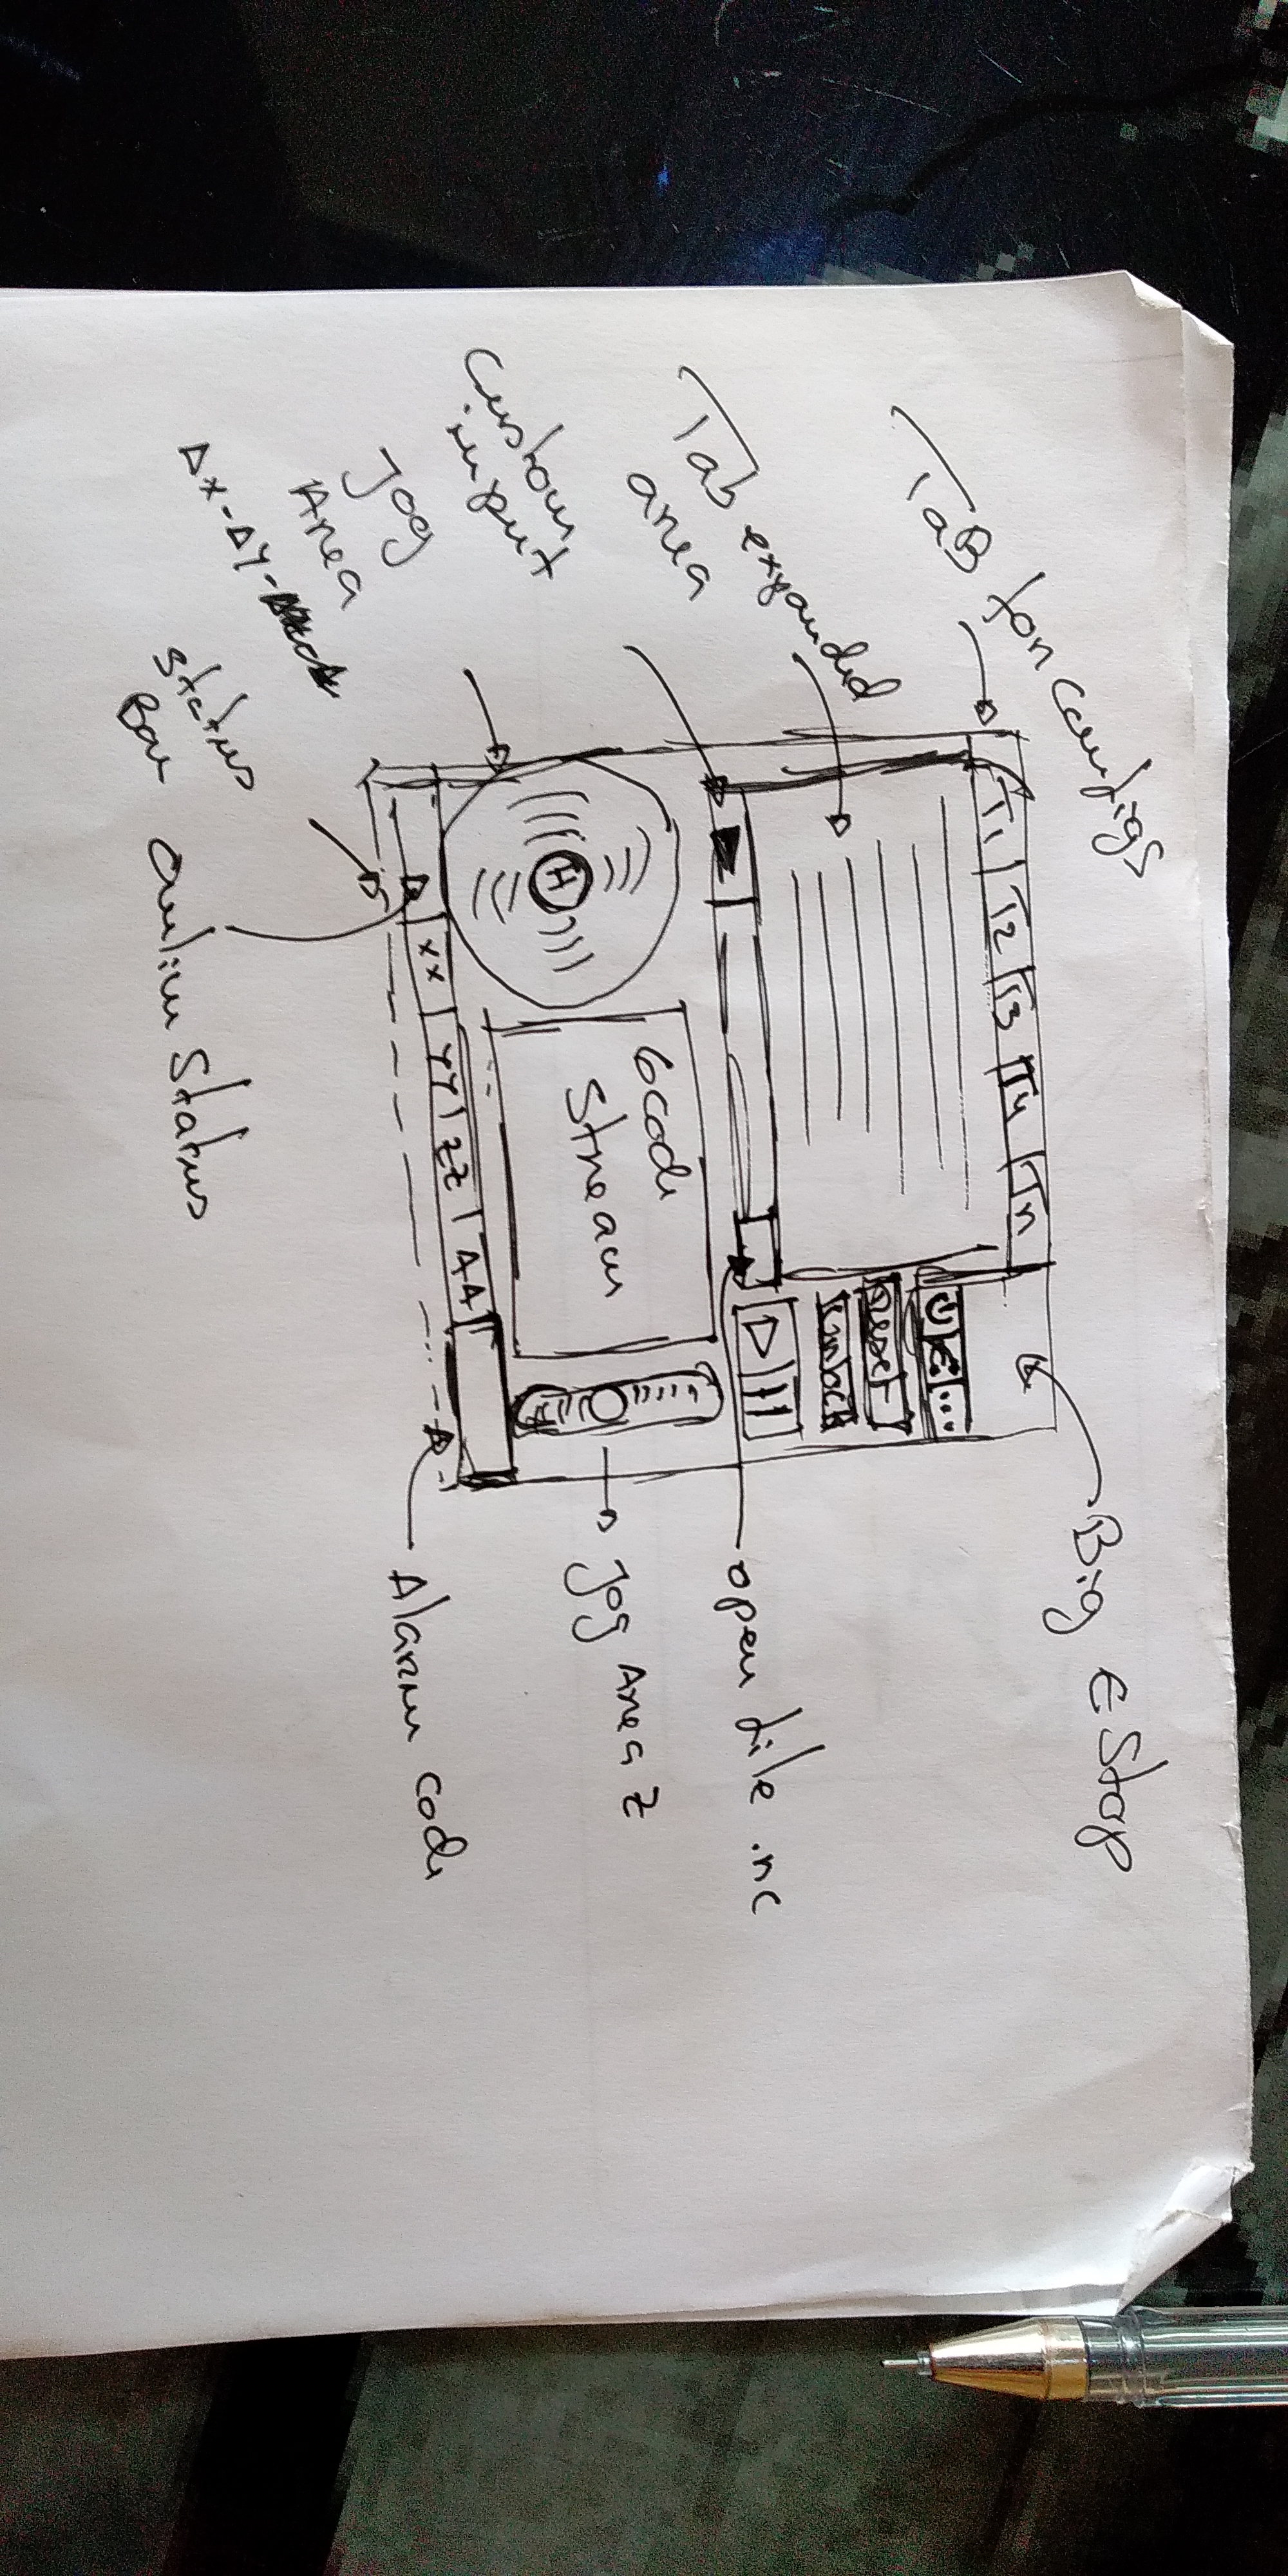 TaB for configs
Big E Stop
Tab expanded
area
T1 T2 T3 T4 Tn
...
Reset
Unlock
Custom
input
open file .nc
Jog
Area
ΔX-ΔY-
H
Gcode
Stream
Jog Area Z
XX YY ZZ AA
Status
Bar
Onlin Status
Alarm code